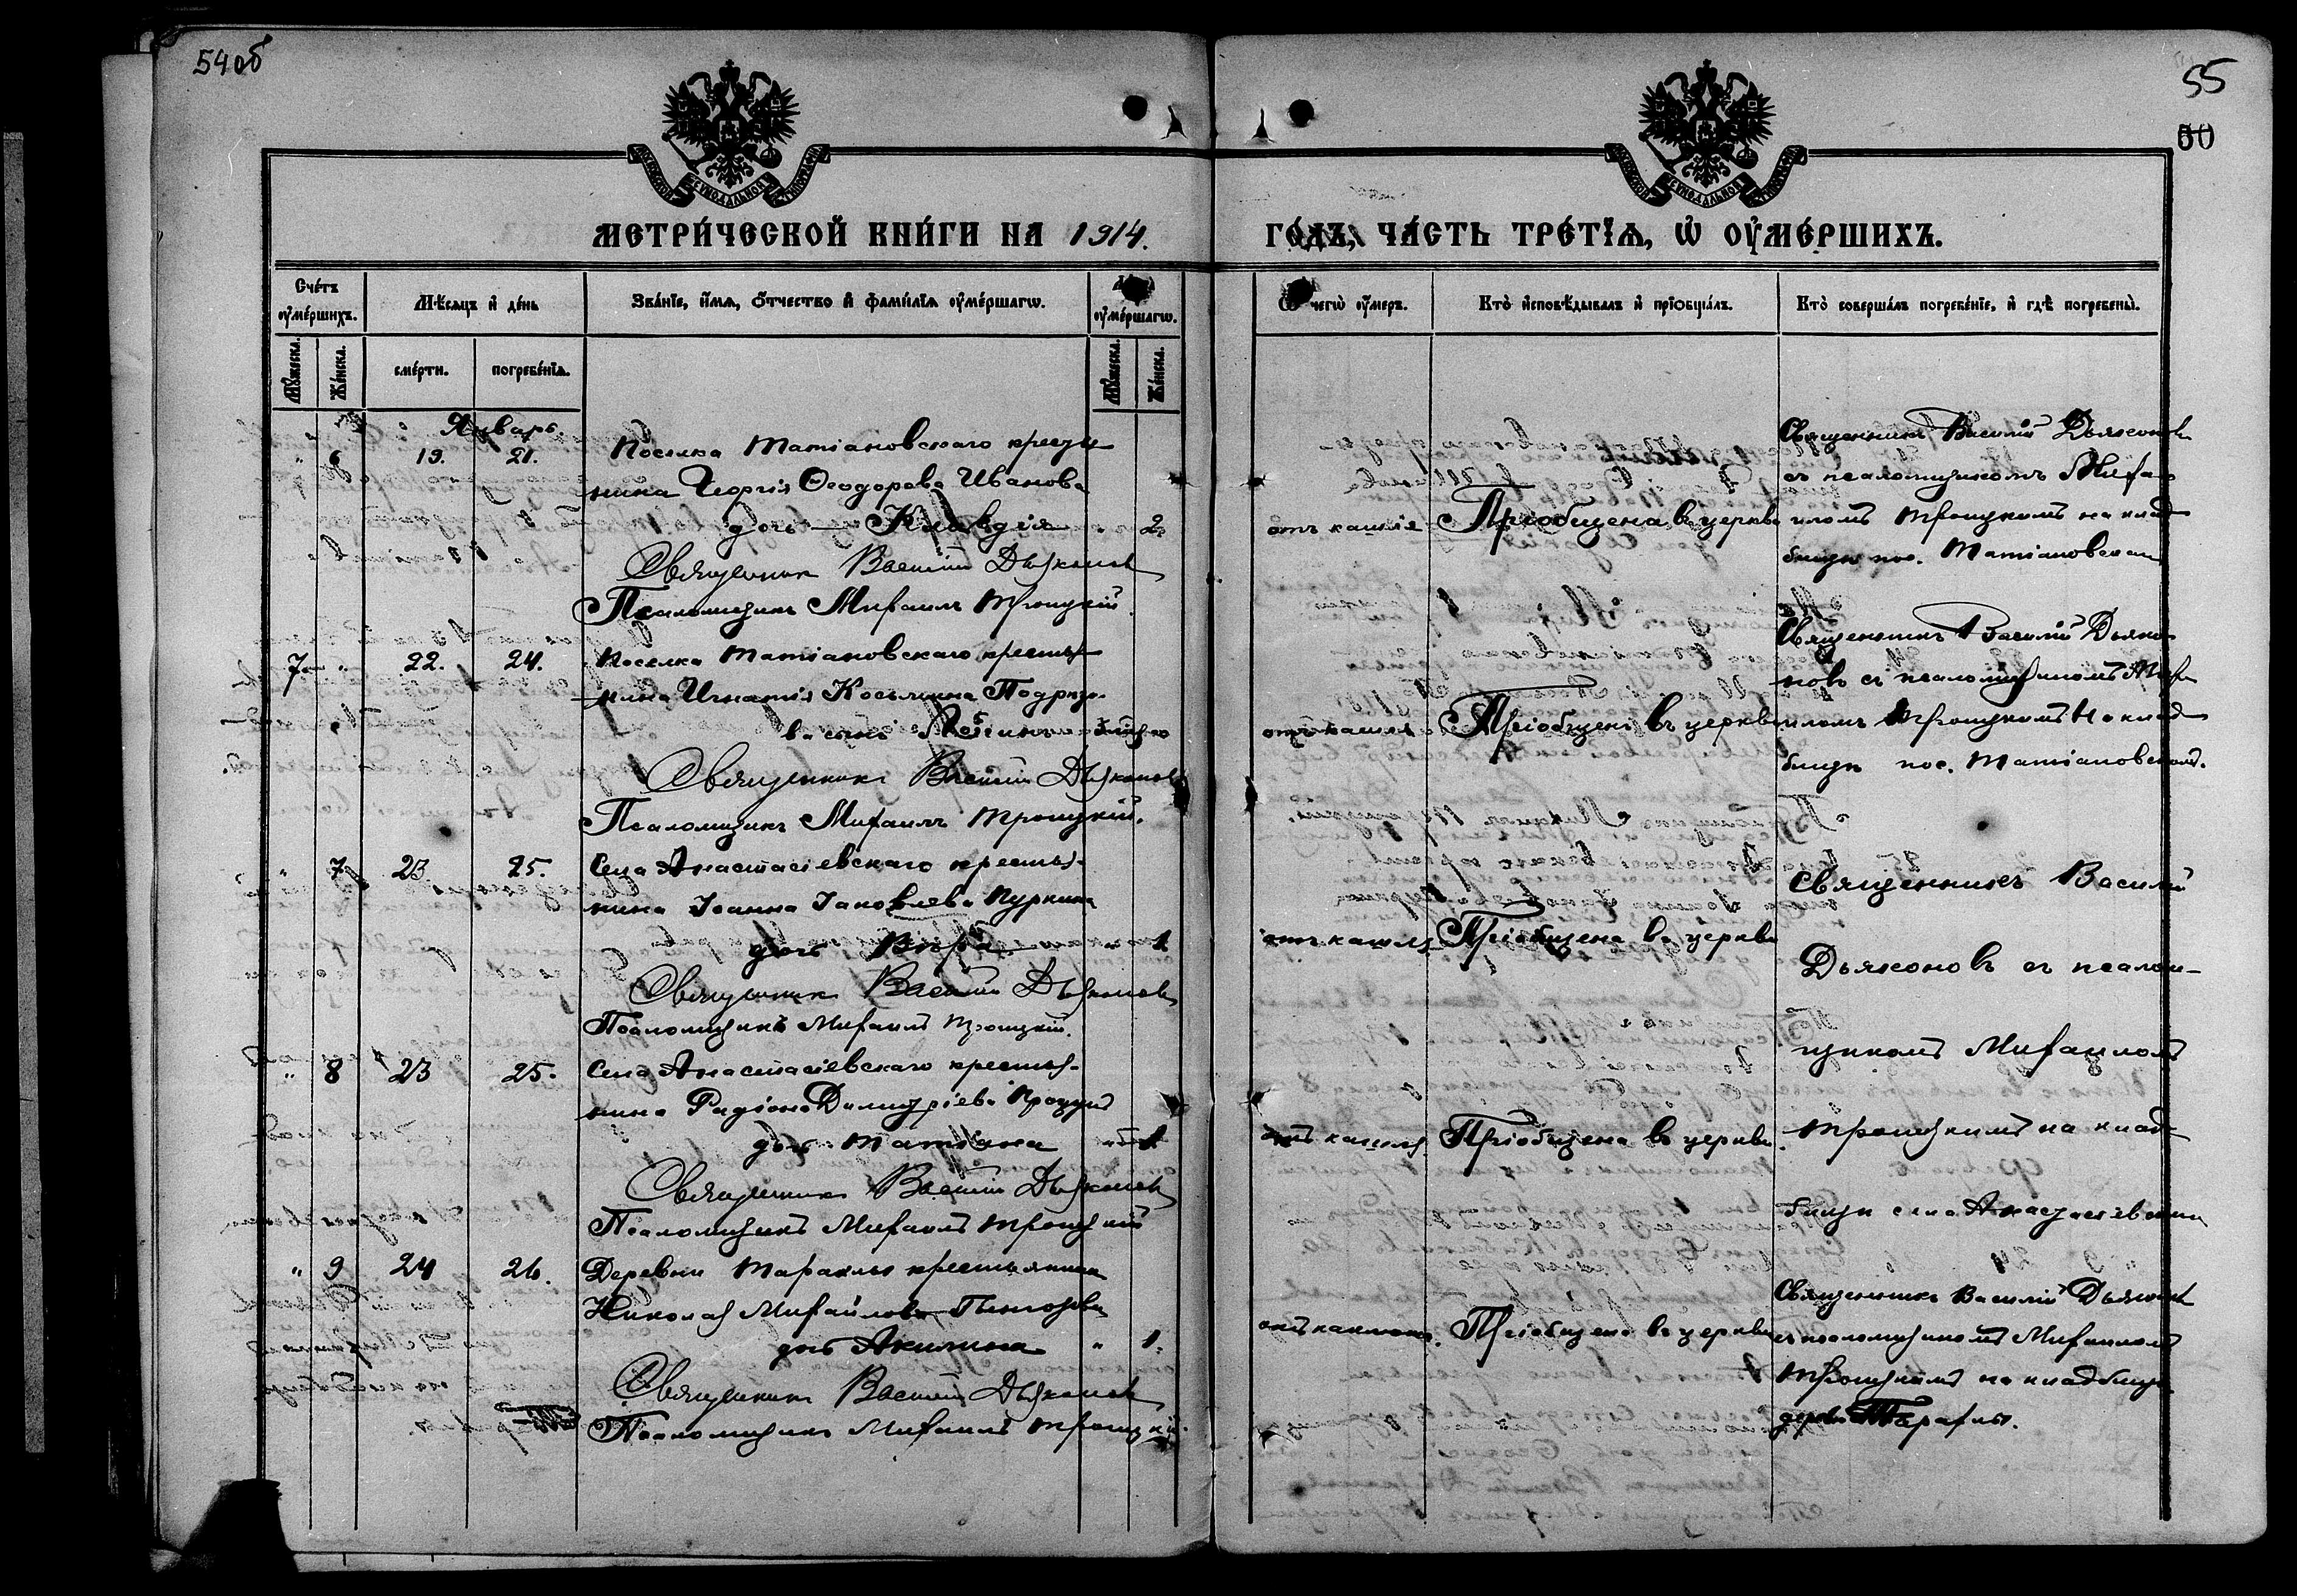 54об
55
50
МЕТРИ́ЧЕСКОЙ КНИ́ГИ НА 1914.
ГО́ДЪ, ЧА́СТЬ ТРЕ́ТІѦ, Ѿ ОУ҆МЕ́РШИХЪ.
Сче́тъ оу҆ме́ршихъ.
Мѣ́сѧцъ и҆ де́нь
Зва́нїе, и҆́мѧ, ѻ҆́тчество и҆ фами́лїѧ оу҆ме́ршагѡ.
оу҆ме́ршагѡ.
чегѡ̀ оу҆́меръ.
Кто̀ и҆сповѣ́дывалъ и҆ прїобща́лъ.
Кто̀ соверша́лъ погребе́нїе, и҆ гдѣ̀ погребены̀.
Мꙋ́жеска.
Же́нска.
сме́рти.
погребе́нїѧ.
Мꙋ́жеска.
Же́нска.
Январь.
" 6 19. 21. Поселка Татіановскаго кресть
нина Георгія Ѳеодорова Иванова
дочь — Клавдія " 2
Священник Василий Дьяконов
Псаломщикъ Михаилъ Троицкій.
отъ кашля Пріобщена в церкви
Священникъ Василій Дьяконовъ
съ псаломщикомъ Миха
иломъ Троицкимъ на клад
бищѣ пос. Татіановскаго
7 " 22. 24. Поселка Татіановскаго кресть
нина Игнатія Косьмина
въ сынъ
Священник Василий Дьяконов
Псаломщикъ Михаилъ Троицкій.
отъ кашля Пріобщенъ въ церкви
Священникъ Василій Дьяко
новъ съ псаломщикомъ Миха
иломъ Троицкимъ на клад
бищѣ пос. Татіановскомъ.
" 7 23 25. Села Анастасіевскаго кресть
нина Іоанна Іаковлева Пуркина
дочь Вѣра " 1
Священник Василий Дьяконов
Псаломщикъ Михаилъ Троицкій.
отъ кашля Пріобщена въ церкви
Священникъ Василій
Дьяконовъ съ псалом-
щикомъ Михаиломъ
Троицкимъ на клад-
бищѣ села Анастасіевскаго
" 8 23 25. Села Анастасіевскаго кресть
нина Радіона Димитріева
дочь Татіана " 1
Священник Василий Дьяконов
Псаломщикъ Михаилъ Троицкій
отъ кашля Пріобщена въ церкви.
" 9 24 26. Деревни Тараклы крестьянина
Николая Михайлова
дочь Акилина " 1.
Священник Василий Дьяконов
Псаломщикъ Михаилъ Троицкій.
Пріобщена въ церкви
Священникъ Василій Дьяконовъ
съ псаломщикомъ Михаиломъ
Троицкимъ на кладбищѣ